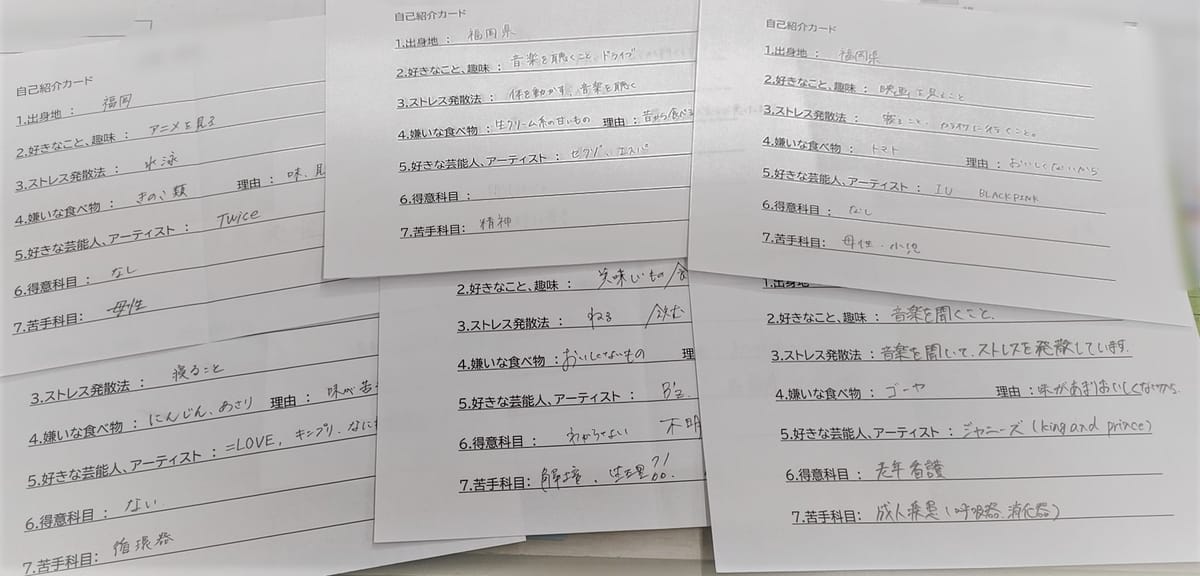 自己紹介カード
1.出身地 : 福岡
2.好きなこと、趣味 : アニメを見る
3.ストレス発散法 : 水泳
4.嫌いな食べ物 : きのこ類 理由 : 味、見
5.好きな芸能人、アーティスト : Twice
6.得意科目 : なし
7.苦手科目: 母性
自己紹介カード
1.出身地 : 福岡県
2.好きなこと、趣味 : 音楽を聴くこと、ドライブ
3.ストレス発散法 : 体を動かす、音楽を聴く
4.嫌いな食べ物 : 生クリーム系の甘いもの 理由 : 昔から食べる
5.好きな芸能人、アーティスト : ゼクゾ、エスパ
6.得意科目 :
7.苦手科目: 精神
自己紹介カード
1.出身地 : 福岡県
2.好きなこと、趣味 : 映画を見ること
3.ストレス発散法 : 寝ること、カラオケに行くこと。
4.嫌いな食べ物 : トマト 理由 : おいしくないから
5.好きな芸能人、アーティスト : IU BLACKPINK
6.得意科目 : なし
7.苦手科目: 母性・小児
3.ストレス発散法 : 寝ること
4.嫌いな食べ物 : にんじん、あさり 理由 : 味が苦
5.好きな芸能人、アーティスト : =LOVE, キンプリ, なに
6.得意科目 : ない
7.苦手科目: 循環器
2.好きなこと、趣味 : 美味しいもの/食
3.ストレス発散法 : ねる /飲む
4.嫌いな食べ物 : おいしくないもの 理
5.好きな芸能人、アーティスト : B'z
6.得意科目 : わからない 不明
7.苦手科目: 解培、生理?!
1.出身地
2.好きなこと、趣味 : 音楽を聞くこと。
3.ストレス発散法 : 音楽を聞いて、ストレスを発散しています。
4.嫌いな食べ物 : ゴーヤ 理由 : 味があまりおいしくないから。
5.好きな芸能人、アーティスト : ジャニーズ(king and prince)
6.得意科目 : 老年看護
7.苦手科目: 成人疾患(呼吸器、消化器)